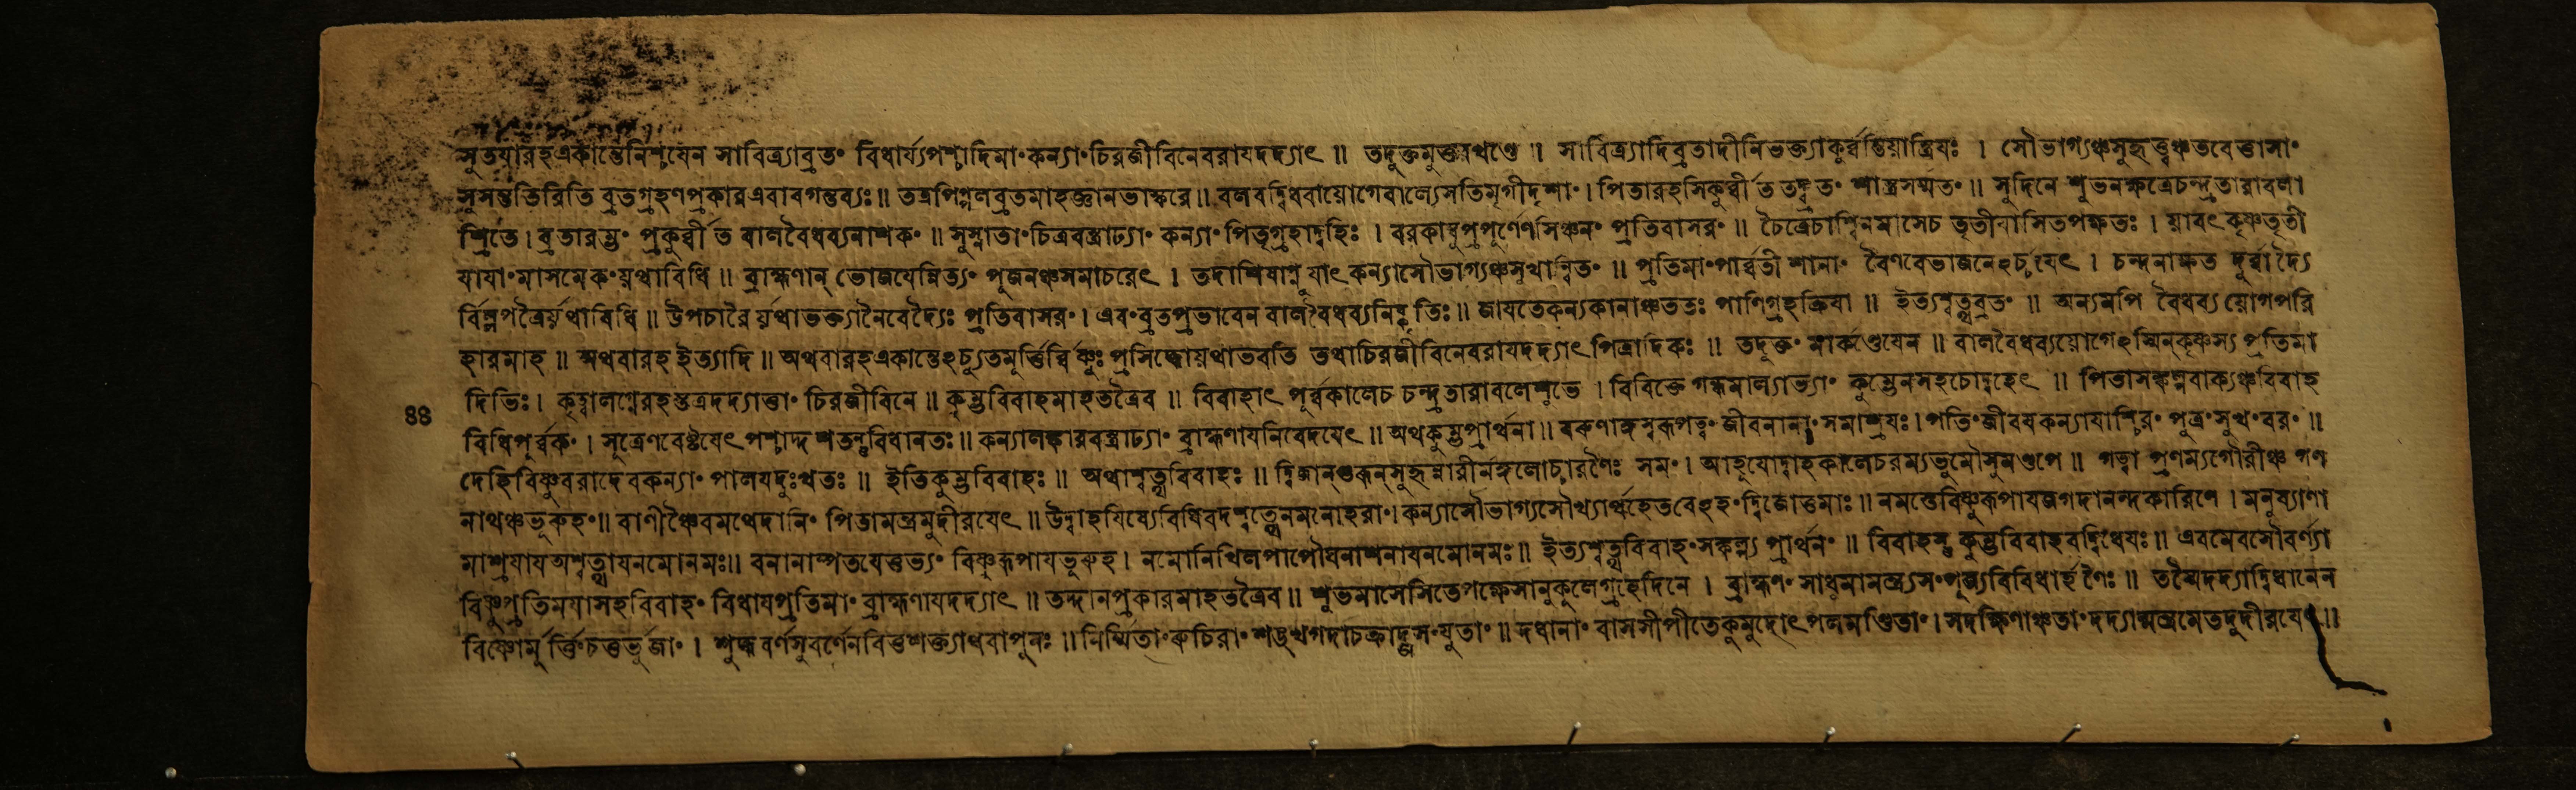 সুতযারহএকান্তেনিশ্চযেন সাবিত্র্যাব্রত॰ বিধার্য্যপশ্চাদিমা॰কন্যা॰চিরজীবিনেবরাযদদ্যাৎ ॥ তদুক্তমুক্তাখণ্ডে ॥ সাবিত্র্যাদিব্রতাদীনিভক্ত্যাকুর্ব্বন্তিয়াস্ত্রিযঃ । সৌভাগ্যঞ্চসুহৃত্ত্বঞ্চভবেত্তাসা॰
সুসন্ততিরিতি ব্রতগ্রহণপ্রকারএবাবগন্তব্যঃ ॥ তত্রপিপ্পলব্রতমাহজ্ঞানভাস্করে ॥ বলবদ্বিধবাযোগেবাল্যেসতিমৃগীদৃশা॰ । পিতারহসিকুর্ব্বীত তদ্ব্রত॰ শাস্ত্রসম্মত॰ ॥ সুদিনে শুভনক্ষত্রেচন্দ্রতারাবলা
শ্রিতে । ব্রতারম্ভ॰ প্রকুর্ব্বীত বালবৈধব্যনাশক॰ ॥ সুস্নাতা॰চিত্রবস্ত্রাঢ্যা॰ কন্যা॰পিতৃগৃহাদ্বহিঃ । বরকাম্বুপ্রপূর্ণেণসিঞ্চন॰ প্রতিবাসর॰ ॥ চৈত্রেচাশ্বিনমাসেচ তৃতীযাসিতপক্ষতঃ । য়াবৎকৃষ্ণতৃতী
যাযা॰মাসমেক॰য়থাবিধি ॥ ব্রাহ্মণান্ ভোজযেন্নিত্য॰ পূজনঞ্চসমাচরেৎ । তদাশিষাপ্নুযাৎকন্যাসৌভাগ্যঞ্চসুখান্বিত॰ ॥ প্রতিমা॰পার্ব্বতীশানা॰ বৈণবেভাজনেঽর্চযেৎ । চন্দনাক্ষত দূর্ব্বাদ্যৈ
র্বিল্বপত্রৈর্য়থাবিধি ॥ উপচারৈর্য়থাভক্ত্যানৈবেদ্যৈঃ প্রতিবাসর॰ । এব॰ব্রতপ্রভাবেন বালবৈধব্যনিষ্কৃতিঃ ॥ জাযতেকন্যকানাঞ্চততঃ পাণিগ্রহক্রিযা ॥ ইত্যশ্বত্থব্রত॰ ॥ অন্যমপি বৈধব্য য়োগপরি
হারমাহ ॥ অথবারহ ইত্যাদি ॥ অথবারহএকান্তেঽচ্যুতমূর্ত্তির্বিষ্ণুঃপ্রসিদ্ধোয়থাভবতি তথাচিরজীবিনেবরাযদদ্যাৎপিত্রাদিকঃ ॥ তদুক্ত॰ মার্কণ্ডেযেন ॥ বালবৈধব্যয়োগেঽস্মিন্কৃষ্ণস্য প্রতিমা
দিভিঃ । কৃত্বালগ্নেরহস্তত্রদদ্যাত্তা॰ চিরজীবিনে ॥ কুম্ভবিবাহমাহতত্রৈব ॥ বিবাহাৎ পূর্ব্বকালেচ চন্দ্রতারাবলেশুভে । বিবিক্তে গন্ধমাল্যাভ্যা॰ কুম্ভেনসহচোদ্বহেৎ ॥ পিতাসঙ্কল্পবাক্যঞ্চবিবাহ
৪৪
বিধিপূর্ব্বক॰ । সূত্রেণবেষ্টযেৎপশ্চাদ্দশতন্তুবিধানতঃ ॥ কন্যালঙ্কারবস্ত্রাঢ্যা॰ ব্রাহ্মণাযনিবেদযেৎ ॥ অথকুম্ভপ্রার্থনা ॥ বরুণাঙ্গস্বরূপত্ব॰জীবনানা॰সমাশ্রযঃ । পতি॰জীবযকন্যাযাশ্চির॰ পুত্র॰সুখ॰বর॰ ॥
দেহিবিষ্ণুবরাদেবকন্যা॰ পালযদুঃখতঃ ॥ ইতিকুম্ভবিবাহঃ ॥ অথাশ্বত্থবিবাহঃ ॥ দ্বিজান্গুরূন্সুহৃন্নারীর্মঙ্গলোচ্চারণৈঃ সম॰ । আহুযোদ্বাহকালেচরম্যভূমৌসুমণ্ডপে ॥ গত্বা প্রণম্যগৌরীঞ্চ গণ
নাথঞ্চভূরুহ॰ ॥ বাণীঞ্চৈবমথেদানি॰ পিতামন্ত্রমুদীরযেৎ ॥ উদ্বাহযিষ্যেবিধিবদশ্বত্থেনমনোহরা॰ । কন্যাসৌভাগ্যসৌখ্যার্থহেতবেঽহ॰দ্বিজোত্তমাঃ ॥ নমস্তেবিষ্ণুরূপাযজগদানন্দকারিণে । মনুষ্যাণা
মাশ্রযায অশ্বত্থাযনমোনমঃ ॥ বনানাম্পতযেতুভ্য॰ বিষ্ণুরূপাযভূরুহ । নমোনিখিলপাপৌঘনাশনাযনমোনমঃ ॥ ইত্যশ্বত্থবিবাহ॰সঙ্কল্প্য প্রার্থন॰ ॥ বিবাহস্তু কুম্ভবিবাহবদ্বিধেযঃ ॥ এবমেবসৌবর্ণ্যা
বিষ্ণুপ্রতিমযাসহবিবাহ॰ বিধাযপ্রতিমা॰ ব্রাহ্মণাযদদ্যাৎ ॥ তদ্দানপ্রকারমাহতত্রৈব ॥ শুভমাসেসিতেপক্ষেসানুকূলেগ্রহেদিনে । ব্রাহ্মণ॰ সাধুমামন্ত্র্যস॰পূজ্যবিবিধার্হণৈঃ ॥ তস্মৈদদ্যাদ্বিধানেন
বিষ্ণোর্মূর্ত্তি॰চতুর্ভুজা॰ । শুদ্ধবর্ণসুবর্ণেনবিত্তশক্ত্যাথবাপুনঃ ॥ নির্ম্মিতা॰রুচিরা॰শঙ্খগদাচক্রাব্জস॰যুতা॰ ॥ দধানা॰ বাসসীপীতেকুমুদোৎপলমণ্ডিতা॰ । সদক্ষিণাঞ্চতা॰দদ্যান্মন্ত্রমেতদুদীরযেৎ ॥